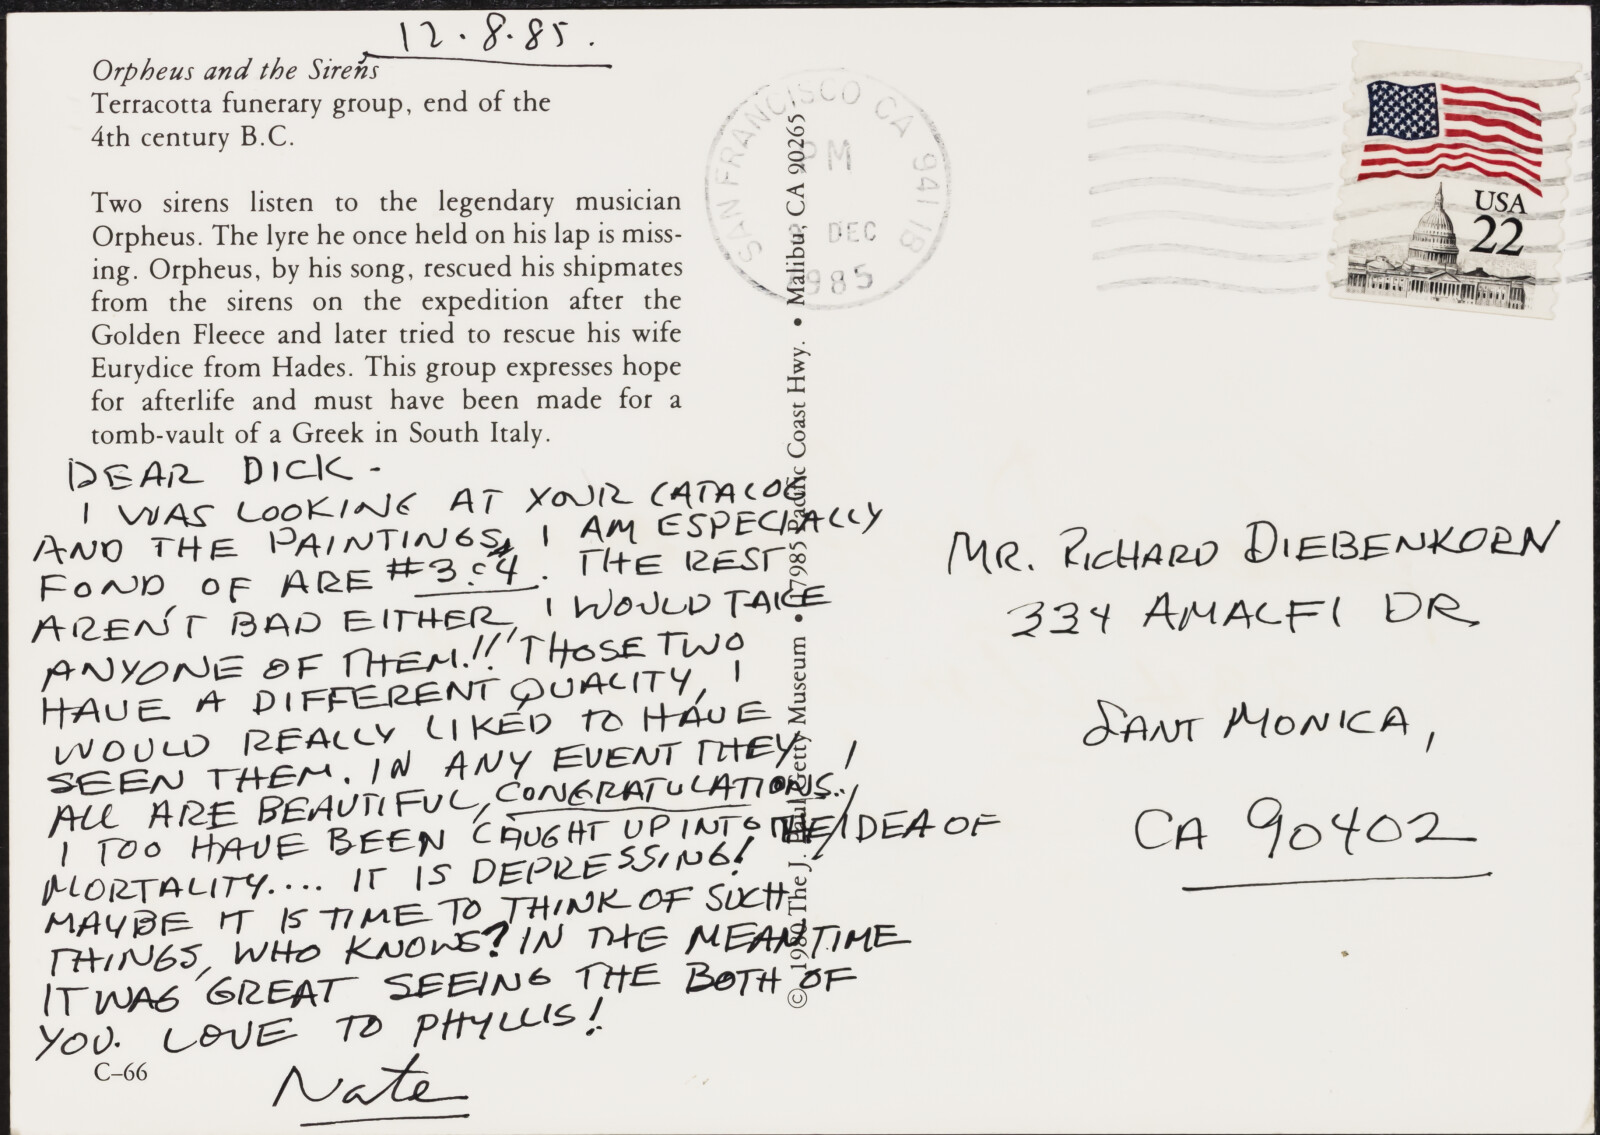 12.8.85.
Orpheus and the Sirens
Terracotta funerary group, end of the
4th century B.C.
Two sirens listen to the legendary musician
Orpheus. The lyre he once held on his lap is miss-
ing. Orpheus, by his song, rescued his shipmates
from the sirens on the expedition after the
Golden Fleece and later tried to rescue his wife
Eurydice from Hades. This group expresses hope
for afterlife and must have been made for a
tomb-vault of a Greek in South Italy.
DEAR DICK -
I WAS LOOKING AT YOUR CATALOG
AND THE PAINTINGS, I AM ESPECIALLY
FOND OF ARE #3 & 4. THE REST
AREN'T BAD EITHER, I WOULD TAKE
ANYONE OF THEM!!! THOSE TWO
HAVE A DIFFERENT QUALITY, I
WOULD REALLY LIKED TO HAVE
SEEN THEM. IN ANY EVENT THEY
ALL ARE BEAUTIFUL, CONGRATULATIONS!
I TOO HAVE BEEN CAUGHT UP INTO THE IDEA OF
MORTALITY.... IT IS DEPRESSING!
MAYBE IT IS TIME TO THINK OF SUCH
THINGS, WHO KNOWS? IN THE MEANTIME
IT WAS GREAT SEEING THE BOTH OF
YOU. LOVE TO PHYLLIS!
Nate
C–66
© 1980 The J. Paul Getty Museum • 17985 Pacific Coast Hwy. • Malibu, CA 90265
SAN FRANCISCO CA 941 18
PM
DEC
1985
USA
22
MR. RICHARD DIEBENKORN
334 AMALFI DR.
SANT MONICA,
CA 90402